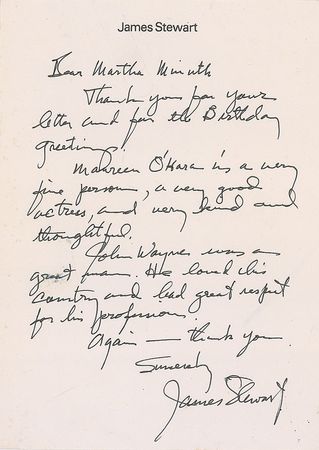 James Stewart
Dear Martha Minuth
Thank you for your
letter and for the Birthday
greetings.
Maureen O'Hara is a very
fine person, a very good
actress, and very kind and
thoughtful.
John Wayne was a
great man. He loved his
country and had great respect
for his profession.
Again — thank you.
Sincerely
James Stewart